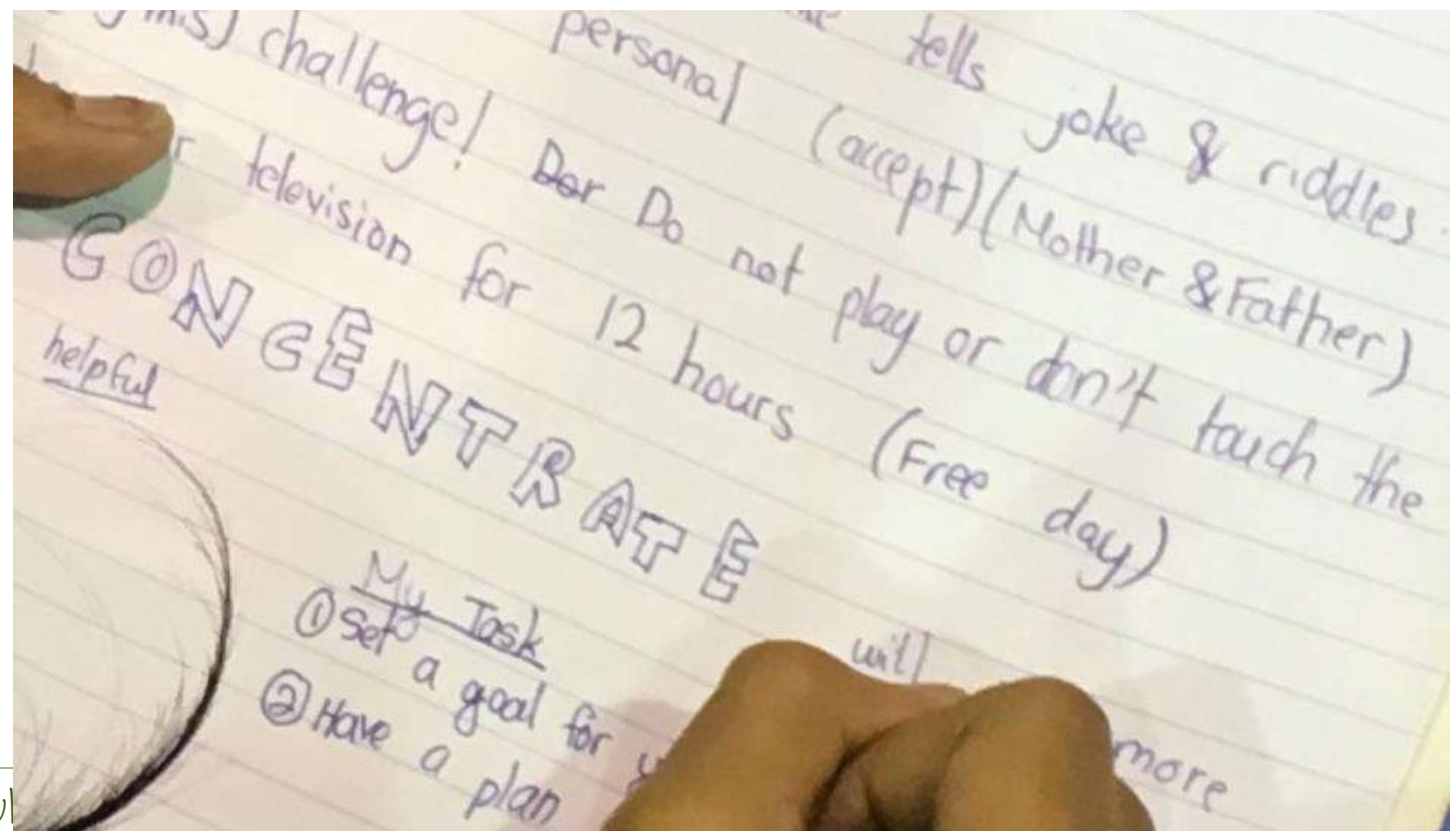 tells joke & riddles.
personal (accept)(Mother & Father)
challenge! Do not play or don't touch the
television for 12 hours (Free day)
CONCENTRATE
helpful
My Task
① Set a goal for
will more
② Have a plan